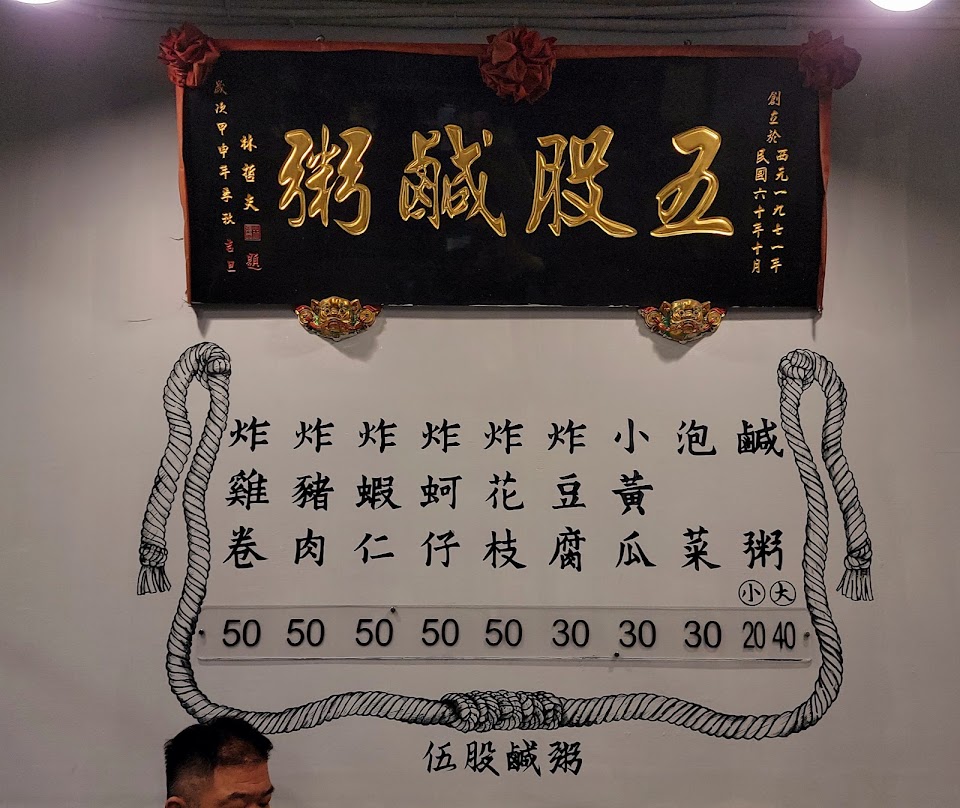 五股鹹粥
創立於西元一九七一年
民國六十年十月
林哲夫題
歲次甲申年季秋吉旦
鹹粥
小 大
20 40
泡菜
30
小黃瓜
30
炸豆腐
30
炸花枝
50
炸蚵仔
50
炸蝦仁
50
炸豬肉
50
炸雞卷
50
伍股鹹粥